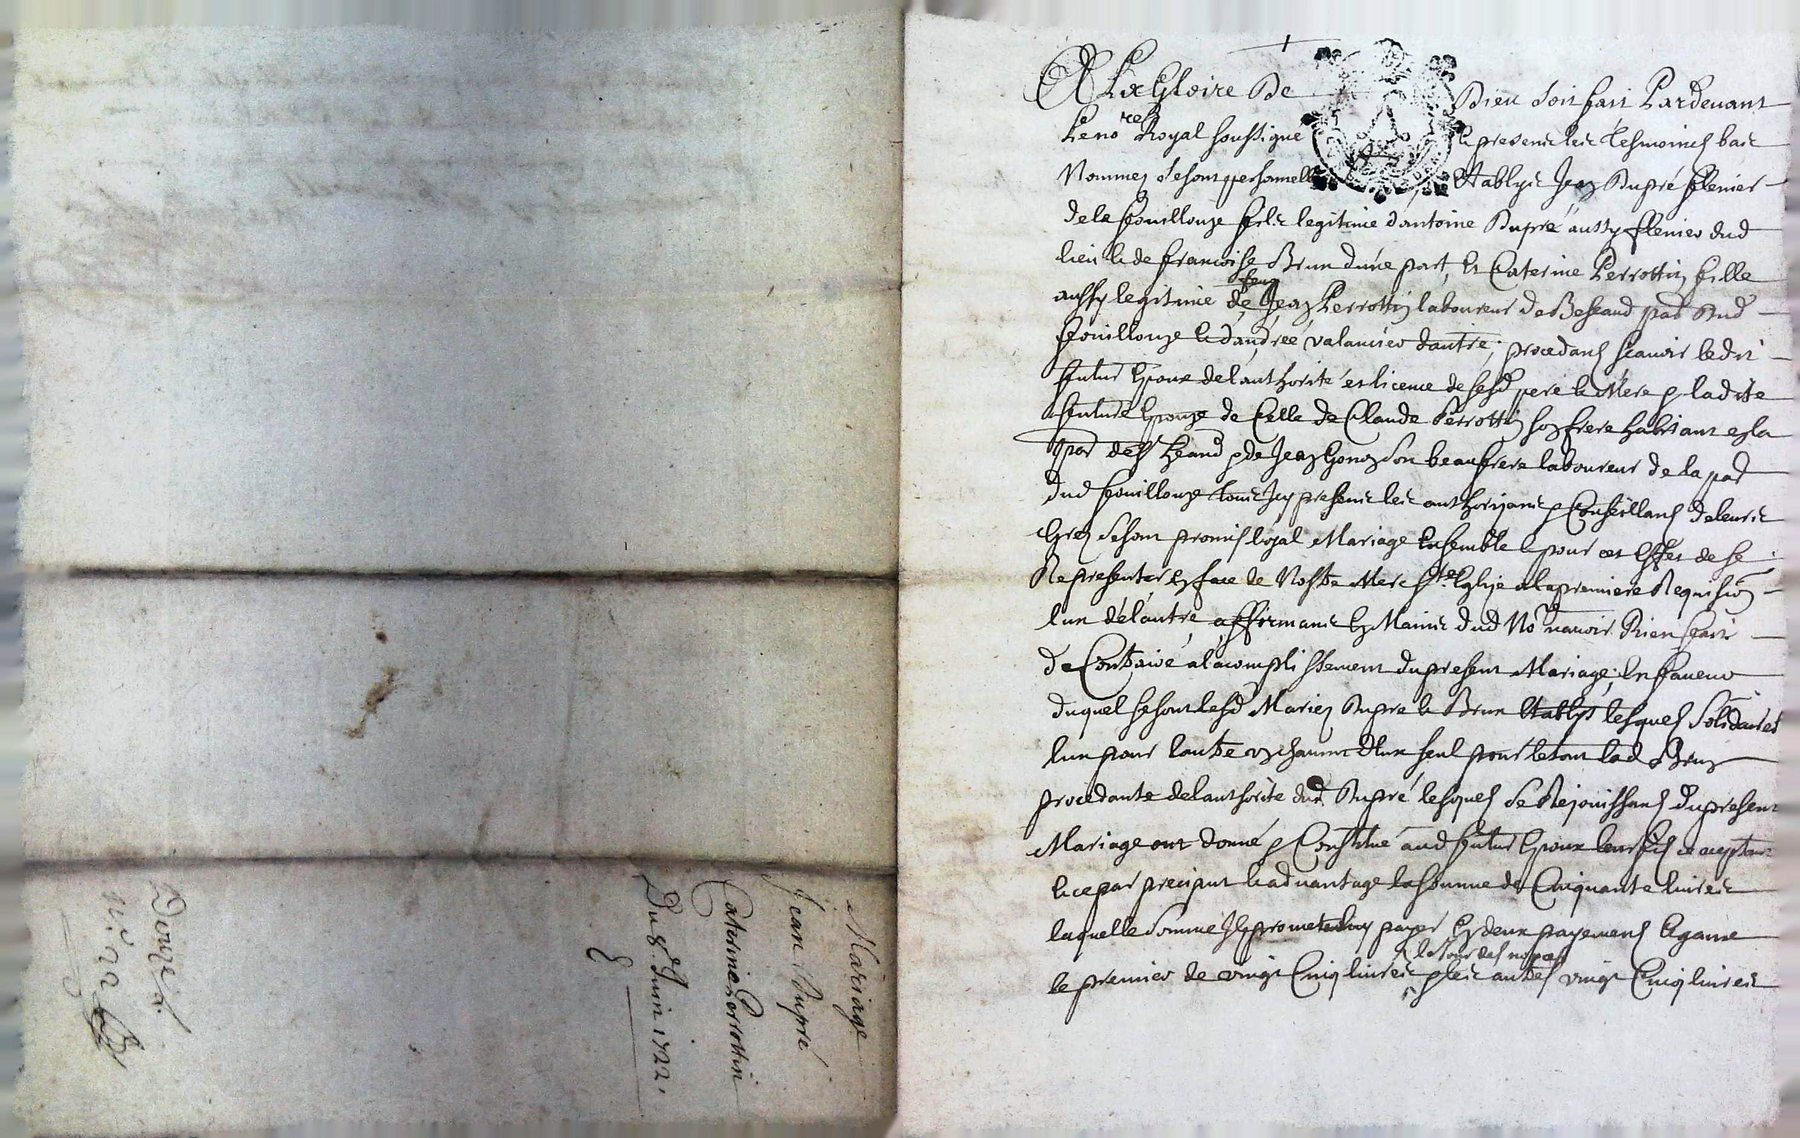 Mariage
Jean Dupré
Caterine Perrottin
Du 8.e Juin 1722.
Douzet
A La Gloire De Dieu soit fait Pardevant
Le no.re Royal soussigne & presents les tesmoings bas
Nommez se sont personnell establys Jean Dupré
de la fouillouze fils legitime d'antoine Dupré aussy dud
lieu & de francoise Brun d'une part, Et Caterine Perrottin fille
aussy legitime de feu Jean Perrottin laboureur de par dud
fouillouze & d'andrée valancier d'autre, procedans scauoir ledit
futur Epoux de l'authorité et licence de sesd pere & Mere & ladite
future Epouze de Celle de Claude Perrottin son frere habitant en la
par & de Jean son beaufrere laboureur de la par
dud fouillouze tous Icy presents les authorizans & Conseillans de leurs
grez se sont promis loyal Mariage Ensemble & pour cet Effet de se
Representer en face de Nostre Mere S.te Eglize a la premiere Requision
l'un de l'autre, affirmants Es Mains dud No.re n'avoir Rien fait
de Contraire a l'acomplissement du present Mariage, En faueur
duquel se sont lesd Mariez Dupre & Brun Etablys lesquels Solidaires
l'un pour l'autre un chacun d'Eux seul pour le tout lad Brun
procedante de l'authorité dud Dupré lesquels se Rejouissans du present
Mariage ont donné & Constitué aud futur Epoux leur fils acceptant
& ce par preciput & aduantage la somme de Cinquante liures
laquelle somme Ils prometent luy payer En deux payements Egaux
le premier de vingt Cinq liures a le Jour des nopces & les autres vingt Cinq liures